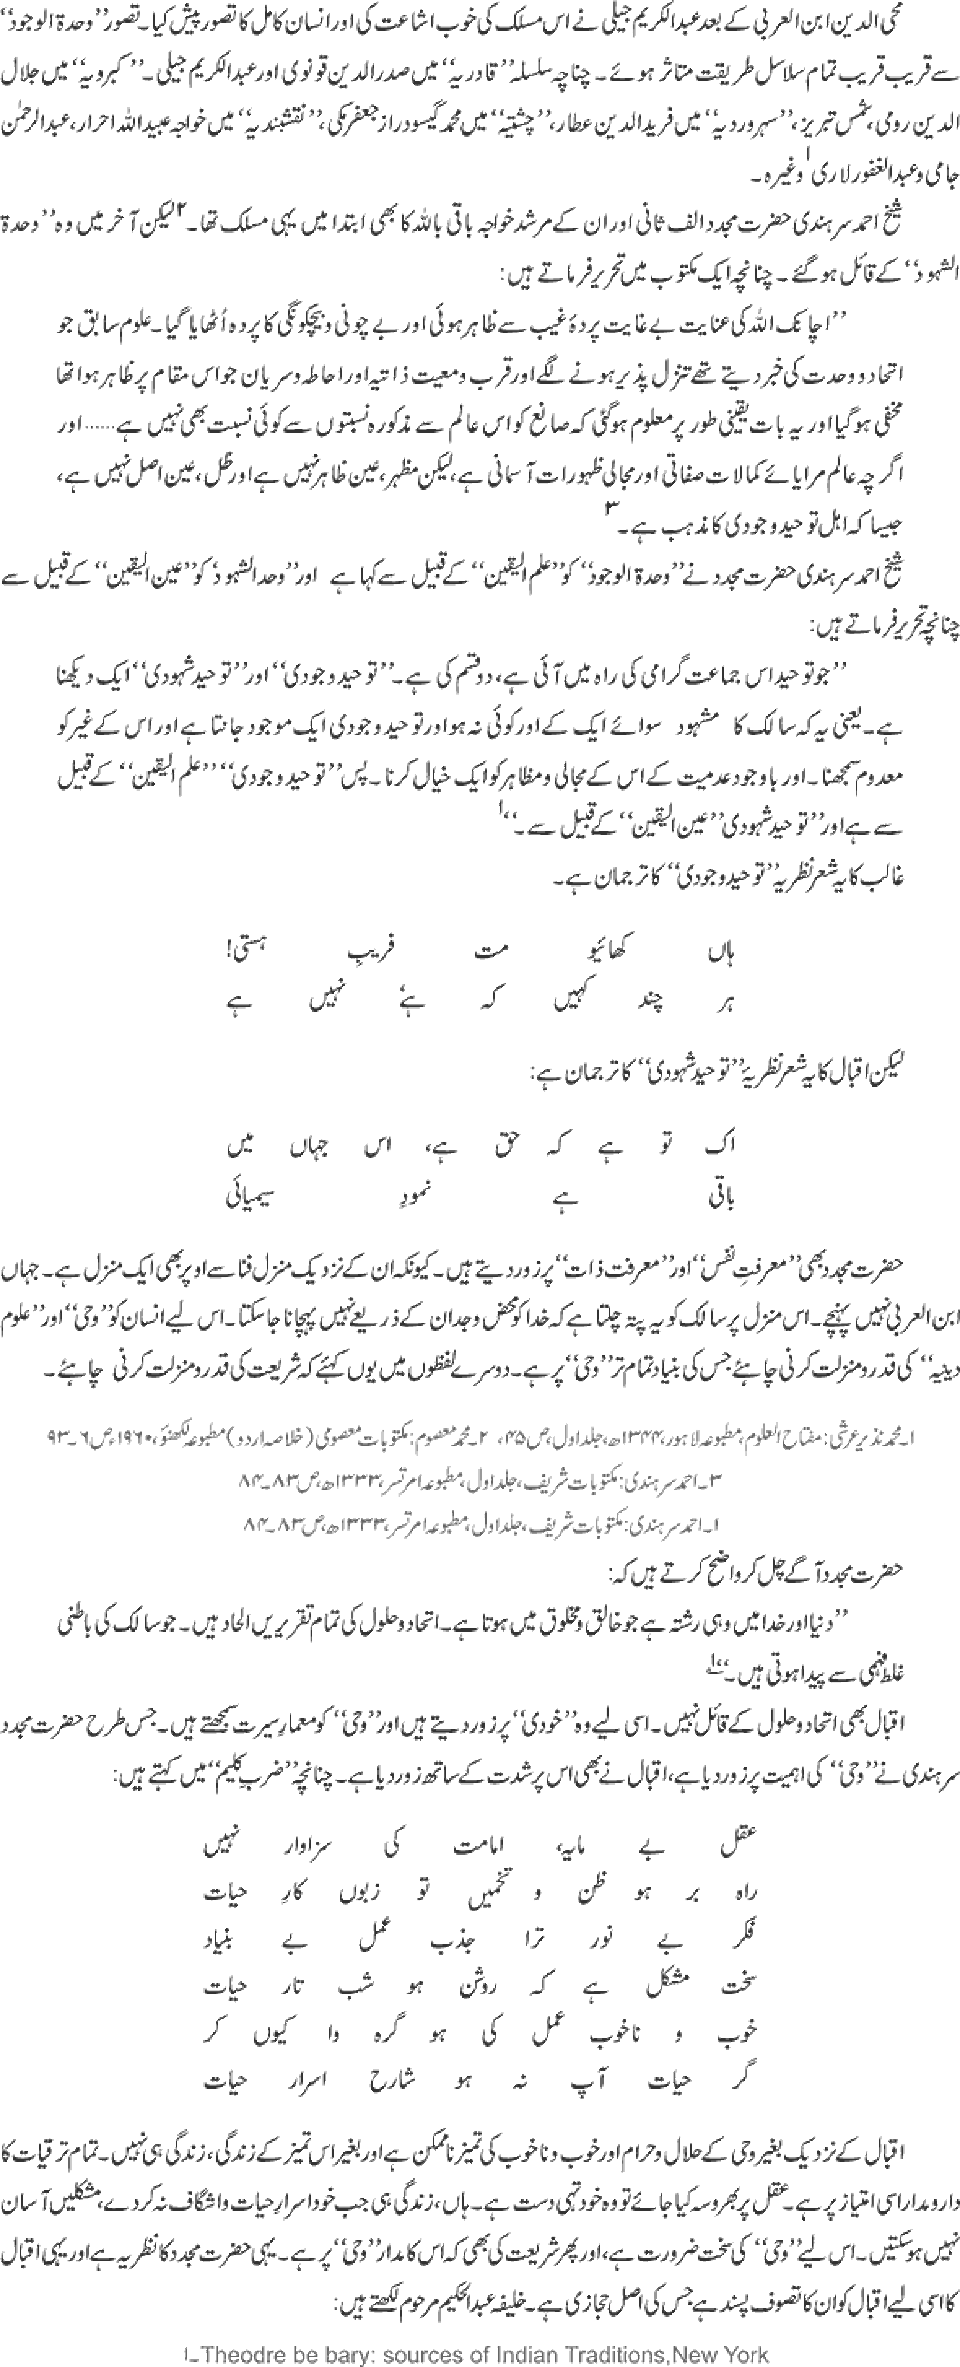 محی الدین ابن العربی کے بعد عبدالکریم جیلی نے اس مسلک کی خوب اشاعت کی اور انسان کامل کا تصور پیش کیا۔ تصور ’’وحدۃ الوجود‘‘
سے قریب قریب تمام سلاسل طریقت متاثر ہوئے۔ چناچہ سلسلہ ’’قادریہ‘‘ میں صدرالدین قونوی اور عبدالکریم جیلی۔ ’’کبرویہ‘‘ میں جلال
الدین رومی، شمس تبریز، ’’سہروردیہ‘‘ میں فریدالدین عطار، ’’چشتیہ‘‘ میں محمد گیسودراز جعفر مکی، ’’نقشبندیہ‘‘ میں خواجہ عبیداللہ احرار، عبدالرحمٰن
جامی و عبدالغفور لاری۱ وغیرہ۔
شیخ احمد سرہندی حضرت مجدد الف ثانی اور ان کے مرشد خواجہ باقی باللہ کا بھی ابتدا میں یہی مسلک تھا۔۲ لیکن آخر میں وہ ’’وحدۃ
الشہود‘‘ کے قائل ہوگئے۔ چنانچہ ایک مکتوب میں تحریر فرماتے ہیں:
’’اچانک اللہ کی عنایت بے غایت پردۂ غیب سے ظاہر ہوئی اور بے چونی و بیچگونگی کا پردہ اُٹھایا گیا۔ علوم سابق جو
اتحاد و وحدت کی خبر دیتے تھے تنزل پذیر ہونے لگے اور قرب و معیت ذاتیہ اور احاطہ و سریان جو اس مقام پر ظاہر ہوا تھا
مخفی ہوگیا اور یہ بات یقینی طور پر معلوم ہوگئی کہ صانع کو اس عالم سے مذکورہ نسبتوں سے کوئی نسبت بھی نہیں ہے...... اور
اگرچہ عالم مرایائے کمالات صفاتی اور مجالی ظہورات آسمانی ہے، لیکن مظہر، عین ظاہر نہیں ہے اور ظل، عین اصل نہیں ہے،
جیسا کہ اہل توحید وجودی کا مذہب ہے۔۳
شیخ احمد سرہندی حضرت مجدد نے ’’وحدۃ الوجود‘‘ کو ’’علم الیقین‘‘ کے قبیل سے کہا ہے اور ’’وحدالشہود‘ کو ’’عین الیقین‘‘ کے قبیل سے
چنانچہ تحریر فرماتے ہیں:
’’جو توحید اس جماعت گرامی کی راہ میں آئی ہے، دو قسم کی ہے۔ ’’توحید وجودی‘‘ اور ’’توحید شہودی‘‘ ایک دیکھنا
ہے۔ یعنی یہ کہ سالک کا مشہود سوائے ایک کے اور کوئی نہ ہو اور توحید وجودی ایک موجود جانتا ہے اور اس کے غیر کو
معدوم سمجھنا۔ اور باوجود عدمیت کے اس کے مجالی و مظاہر کو ایک خیال کرنا۔ پس ’’توحید وجودی‘‘ ’’علم الیقین‘‘ کے قبیل
سے ہے اور ’’توحید شہودی ’’عین الیقین‘‘ کے قبیل سے۔‘‘۱
غالب کا یہ شعر نظریہ ’’توحید وجودی‘‘ کا ترجمان ہے۔
ہاں کھائیو مت فریبِ ہستی!
ہر چند کہیں کہ ’ہے‘ نہیں ہے
لیکن اقبال کا یہ شعر نظریۂ ’’توحید شہودی‘‘ کا ترجمان ہے:
اک تو ہے کہ حق ہے، اس جہاں میں
باقی ہے نمودِ سیمیائی
حضرت مجدد بھی ’’معرفتِ نفس‘‘ اور ’’معرفت ذات‘‘ پر زور دیتے ہیں۔ کیونکہ ان کے نزدیک منزل فنا سے اوپر بھی ایک منزل ہے۔ جہاں
ابن العربی نہیں پہنچے۔ اس منزل پر سالک کو یہ پتہ چلتا ہے کہ خدا کو محض وجدان کے ذریعے نہیں پہچانا جاسکتا۔ اس لیے انسان کو ’’وحی‘‘ اور ’’علوم
دینیہ‘‘ کی قدر و منزلت کرنی چاہئے جس کی بنیاد تمام تر ’’وحی‘‘ پر ہے۔ دوسرے لفظوں میں یوں کہئے کہ شریعت کی قدر و منزلت کرنی چاہئے۔
۱۔ محمد نذیر عرشی: مفتاح العلوم، مطبوعہ لاہور، ۱۳۴۴ھ، جلد اول، ص ۴۵، ۲۔ محمد معصوم: مکتوبات معصومی (خلاصہ اردو) مطبوعہ لکھنؤ، ۱۹۶۰ء، ص ۶۔۹۳
۳۔ احمد سرہندی: مکتوبات شریف، جلد اول، مطبوعہ امرتسر، ۱۳۳۳ھ، ص ۸۳۔۸۴
۱۔ احمد سرہندی: مکتوبات شریف، جلد اول، مطبوعہ امرتسر، ۱۳۳۳ھ، ص ۸۳۔۸۴
حضرت مجدد آگے چل کر واضح کرتے ہیں کہ:
’’دنیا اور خدا میں وہی رشتہ ہے جو خالق و مخلوق میں ہوتا ہے۔ اتحاد و حلول کی تمام تقریریں الحاد ہیں۔ جو سالک کی باطنی
غلط فہمی سے پیدا ہوتی ہیں۔‘‘۱
اقبال بھی اتحاد و حلول کے قائل نہیں۔ اسی لیے وہ ’’خودی‘‘ پر زور دیتے ہیں اور ’’وحی‘‘ کو معمارِ سیرت سمجھتے ہیں۔ جس طرح حضرت مجدد
سرہندی نے ’’وحی‘‘ کی اہمیت پر زور دیا ہے، اقبال نے بھی اس پر شدت کے ساتھ زور دیا ہے۔ چنانچہ ’’ضربِ کلیم‘‘ میں کہتے ہیں:
عقل بے مایہ، امامت کی سزاوار نہیں
راہ بر ہو ظن و تخمیں تو زبوں کارِ حیات
فکر بے نور ترا جذب عمل بے بنیاد
سخت مشکل ہے کہ روشن ہو شب تار حیات
خوب و ناخوب عمل کی ہو گرہ وا کیوں کر
گر حیات آپ نہ ہو شارح اسرار حیات
اقبال کے نزدیک بغیر وحی کے حلال و حرام اور خوب و ناخوب کی تمیز ناممکن ہے اور بغیر اس تمیز کے زندگی، زندگی ہی نہیں۔ تمام ترقیات کا
دارومدار اسی امتیاز پر ہے۔ عقل پر بھروسہ کیا جائے تو وہ خود تہی دست ہے۔ ہاں، زندگی ہی جب خود اسرارِ حیات واشگاف نہ کردے، مشکلیں آسان
نہیں ہوسکتیں۔ اس لیے ’’وحی‘‘ کی سخت ضرورت ہے، اور پھر شریعت کی بھی کہ اس کا مدار ’’وحی‘‘ پر ہے۔ یہی حضرت مجدد کا نظریہ ہے اور یہی اقبال
کا اسی لیے اقبال کو ان کا تصوف پسند ہے جس کی اصل حجازی ہے۔ خلیفہ عبدالحکیم مرحوم لکھتے ہیں:
۱۔Theodre be bary: sources of Indian Traditions,New York